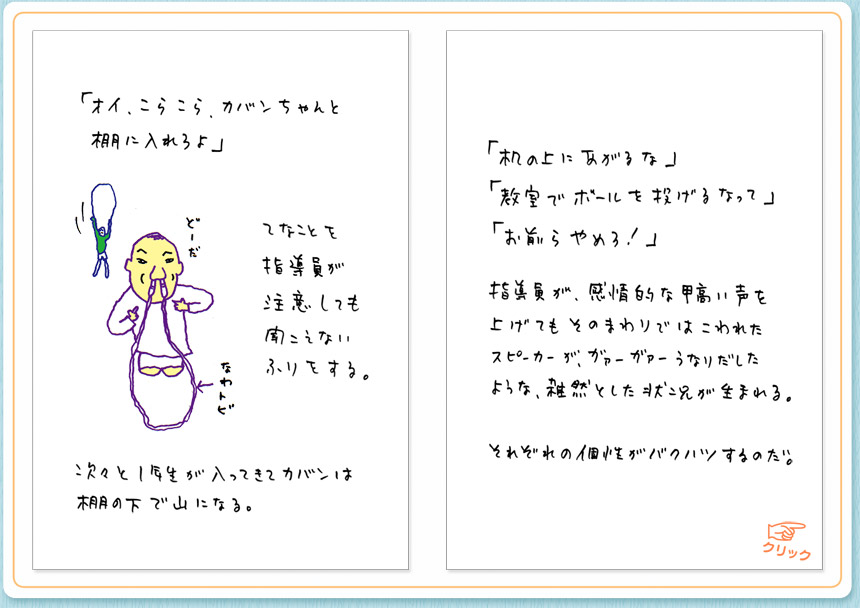 「オイ、こらこら、カバンちゃんと
棚に入れろよ」
どーだ
てなことを
指導員が
注意しても
聞こえない
ふりをする。
なわトビ
次々と1年生が入ってきてカバンは
棚の下で山になる。
「机の上にあがるな」
「教室でボールを投げるなって」
「お前らやめろ！」
指導員が、感情的な甲高い声を
上げてもそのまわりではこわれた
スピーカーが、ガァーガァーうなりだした
ような、雑然とした状況が生まれる。
それぞれの個性がバクハツするのだ。
クリック